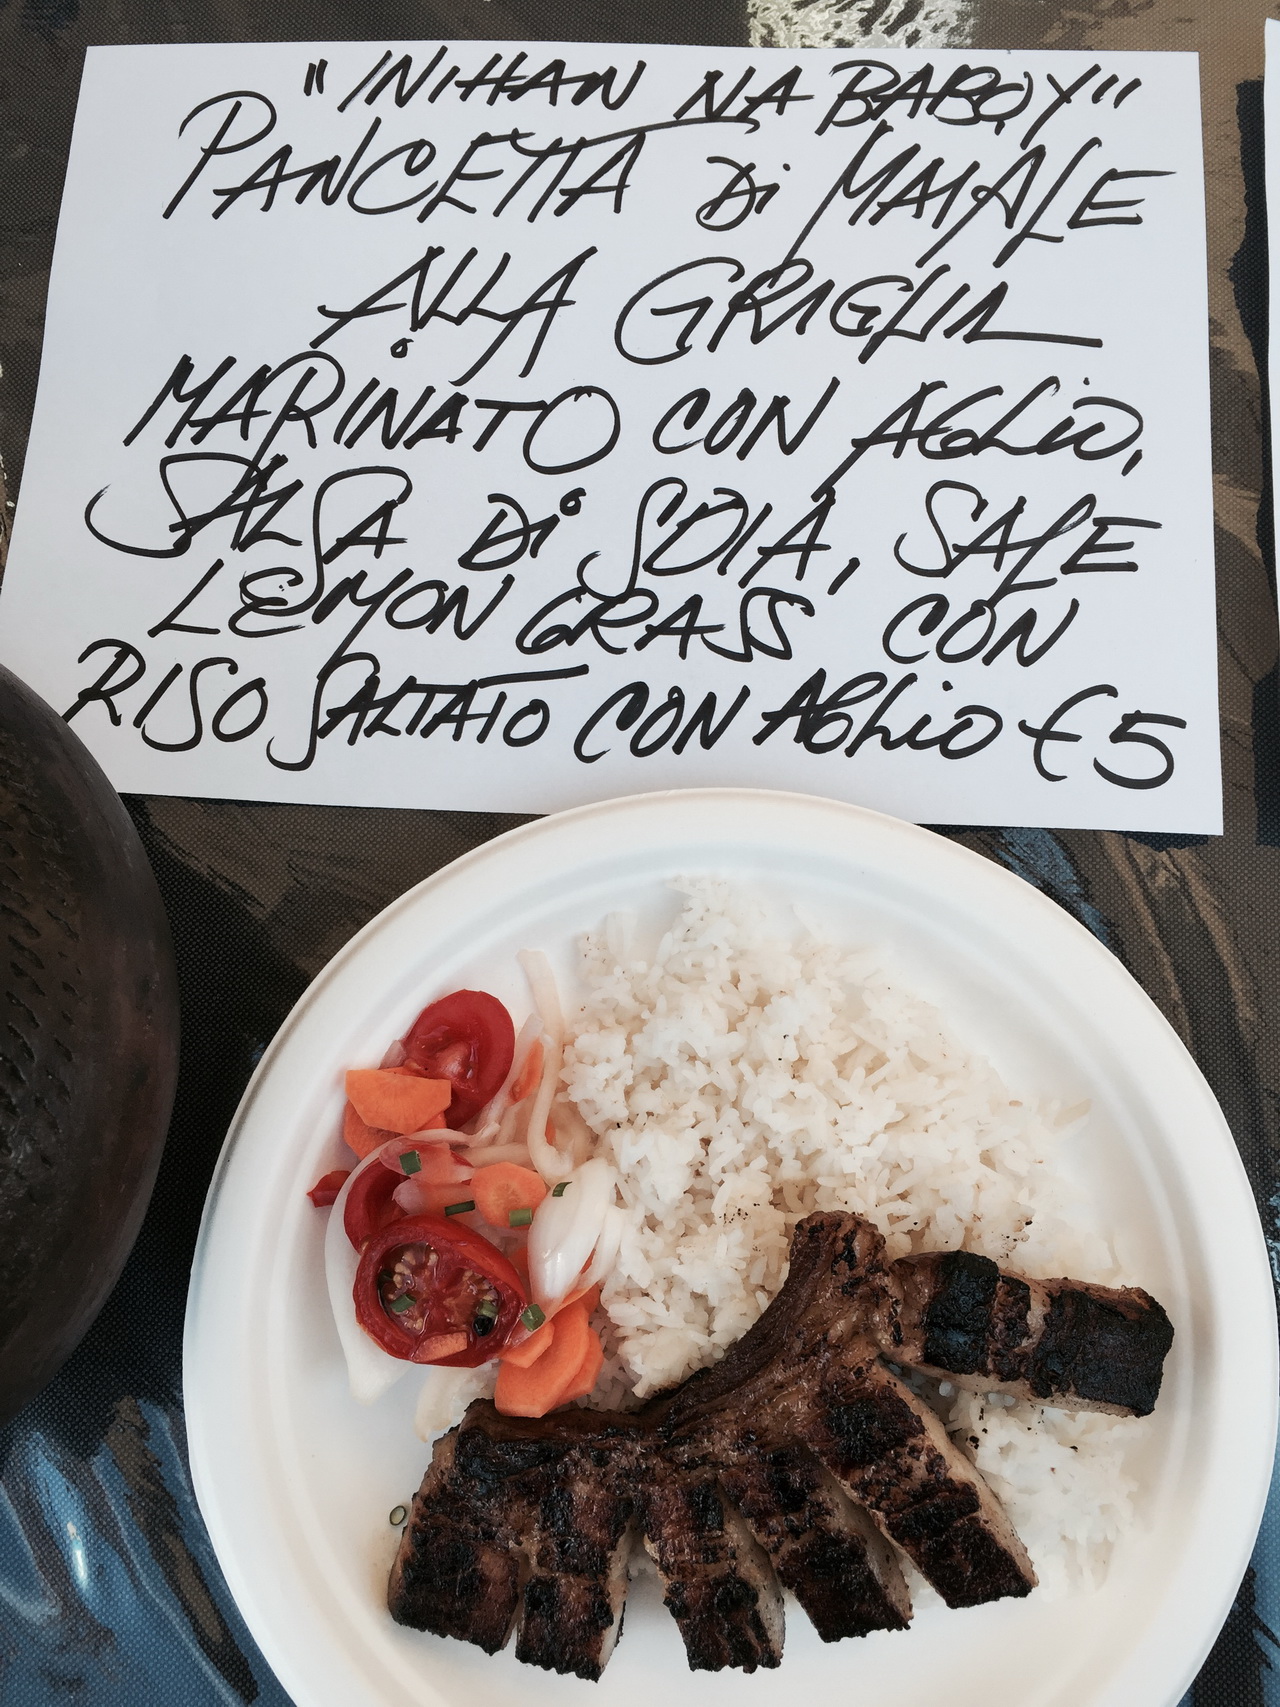 "INIHAN NA BABOY"
PANCETTA Di MAIALE
ALLA GRIGLIA
MARINATO CON AGLiO,
SALSA Di SOIA, SALE
LEMON GRASS CON
RISO SALTATO CON AGLiO €5